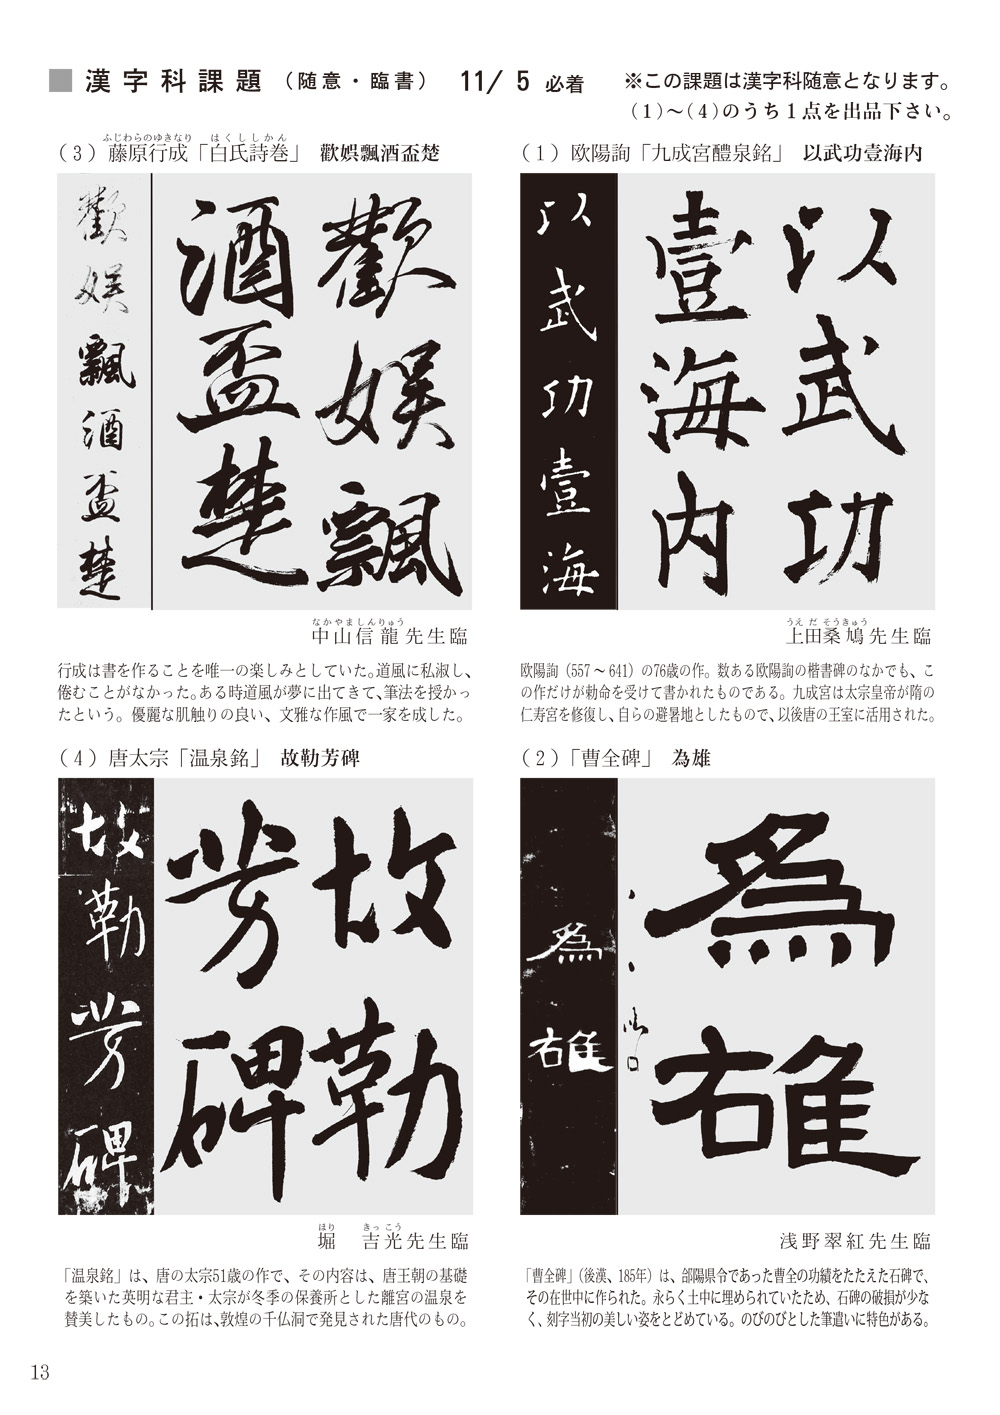 ■ 漢字科課題（随意・臨書） 11/5 必着 ※この課題は漢字科随意となります。
（1）～（4）のうち１点を出品下さい。
（1）欧陽詢「九成宮醴泉銘」 以武功壹海内
以武功
壹海内
以武功壹海
うえだそうきゅう
上田桑鳩先生臨
欧陽詢（557～641）の76歳の作。数ある欧陽詢の楷書碑のなかでも、こ
の作だけが勅命を受けて書かれたものである。九成宮は太宗皇帝が隋の
仁寿宮を修復し、自らの避暑地としたもので、以後唐の王室に活用された。
（2）「曹全碑」 為雄
為雄
為雄
浅野翠紅先生臨
「曹全碑」（後漢、185年）は、郃陽県令であった曹全の功績をたたえた石碑で、
その在世中に作られた。永らく土中に埋められていたため、石碑の破損が少な
く、刻字当初の美しい姿をとどめている。のびのびとした筆遣いに特色がある。
ふじわらのゆきなり はくししかん
（3）藤原行成「白氏詩巻」 歡娯飄酒盃楚
歡娯飄
酒盃楚
歡娯飄酒盃楚
なかやましんりゅう
中山信龍先生臨
行成は書を作ることを唯一の楽しみとしていた。道風に私淑し、
倦むことがなかった。ある時道風が夢に出てきて、筆法を授かっ
たという。優麗な肌触りの良い、文雅な作風で一家を成した。
（4）唐太宗「温泉銘」 故勒芳碑
故勒
芳碑
故勒芳碑
ほり きっこう
堀 吉光先生臨
「温泉銘」は、唐の太宗51歳の作で、その内容は、唐王朝の基礎
を築いた英明な君主・太宗が冬季の保養所とした離宮の温泉を
賛美したもの。この拓は、敦煌の千仏洞で発見された唐代のもの。
13